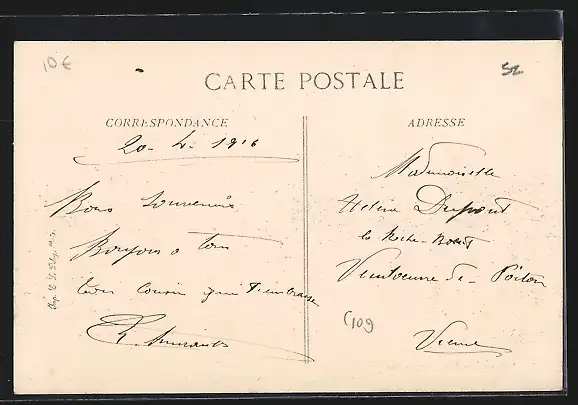 10€
52
CARTE POSTALE
CORRESPONDANCE
ADRESSE
20-4-1916
Bons Souvenirs
Bonjour a tous
ton Cousin qui t'embrasse
Mademoiselle
Hélène Dupont
la Roche-
de-Poitou
Vienne
C109